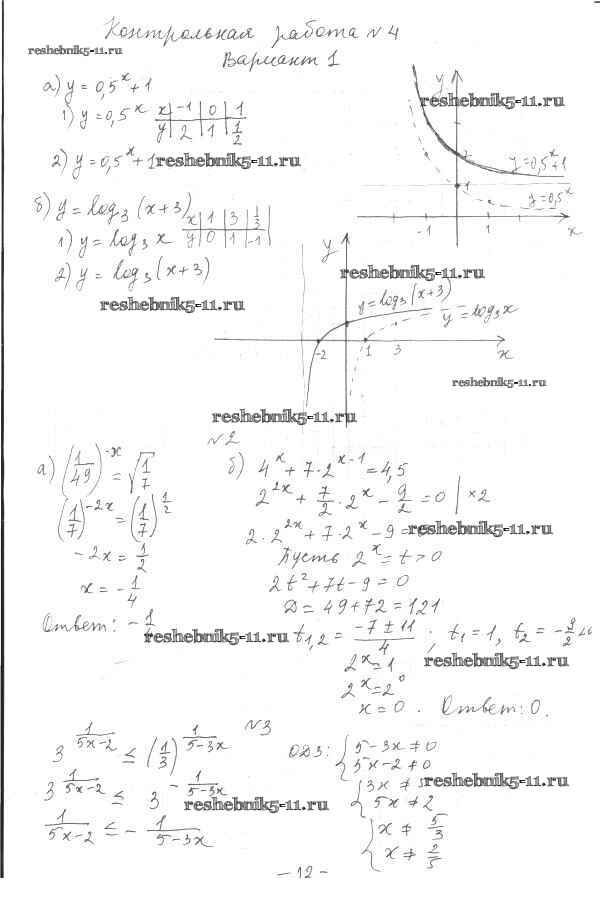 Контрольная работа № 4
reshebnik5-11.ru
Вариант 1
а) y = 0,5^x + 1
1) y = 0,5^x
x | -1 | 0 | 1
y | 2 | 1 | 1/2
2) y = 0,5^x + 1
reshebnik5-11.ru
y
reshebnik5-11.ru
2
y = 0,5^x + 1
1
y = 0,5^x
-1 1 x
б) y = log₃ (x+3)
1) y = log₃ x
x | 1 | 3 | 1/3
y | 0 | 1 | -1
2) y = log₃ (x+3)
reshebnik5-11.ru
y
reshebnik5-11.ru
y = log₃ (x+3)
y = log₃ x
-2 1 3 x
reshebnik5-11.ru
reshebnik5-11.ru
№ 2
а) (1/49)^-x = √(1/7)
(1/7)^-2x = (1/7)^1/2
-2x = 1/2
x = -1/4
Ответ: -1/4
reshebnik5-11.ru
б) 4^x + 7·2^(x-1) = 4,5
2^2x + 7/2 · 2^x - 9/2 = 0 | ×2
2·2^2x + 7·2^x - 9 =
reshebnik5-11.ru
Пусть 2^x = t > 0
2t² + 7t - 9 = 0
D = 49 + 72 = 121
t₁,₂ = (-7 ± 11)/4 ; t₁ = 1, t₂ = -9/2
2^x = 1
reshebnik5-11.ru
2^x = 2^0
x = 0. Ответ: 0.
№ 3
3^(1/(5x-2)) ≤ (1/3)^(1/(5-3x))
3^(1/(5x-2)) ≤ 3^(-1/(5-3x))
reshebnik5-11.ru
1/(5x-2) ≤ - 1/(5-3x)
ОДЗ: { 5 - 3x ≠ 0
5x - 2 ≠ 0
{ 3x ≠ 5
reshebnik5-11.ru
5x ≠ 2
{ x ≠ 5/3
x ≠ 2/5
- 12 -